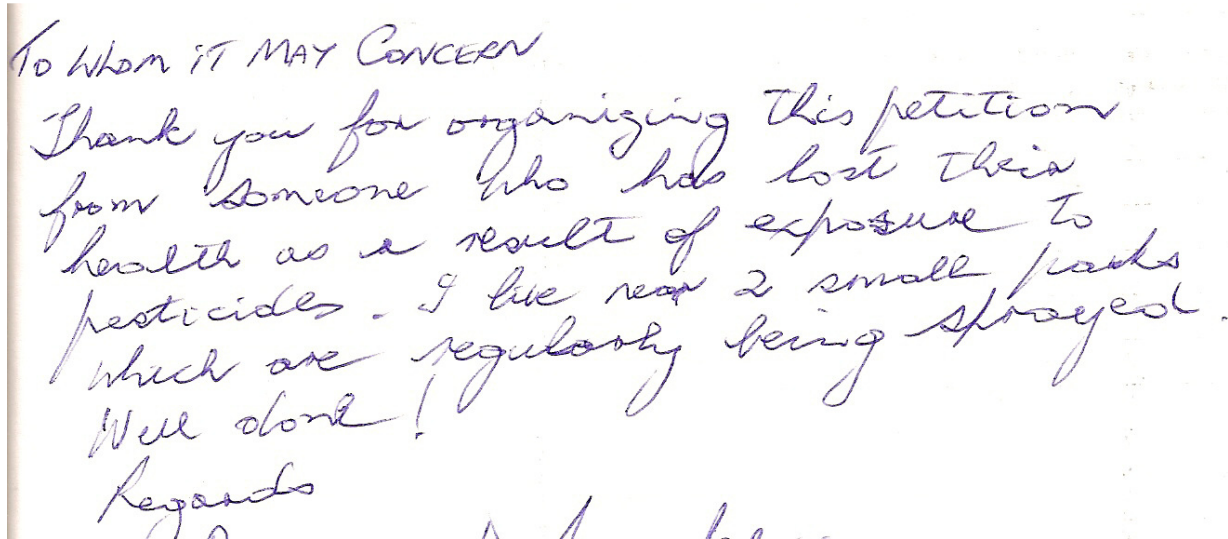 To Whom iT MAY CONCERN
Thank you for organizing this petition
from someone who has lost their
health as a result of exposure to
pesticides. I live near 2 small parks
which are regularly being sprayed.
Well done!
Regards